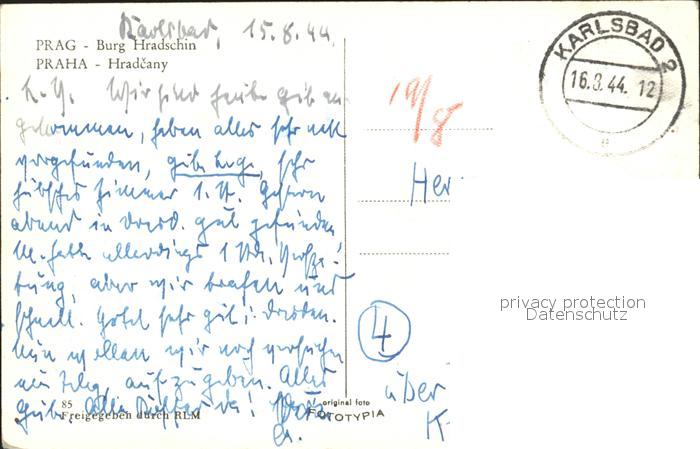 Karlsbad, 15.8.44
PRAG - Burg Hradschin
PRAHA - Hradčany
Wir sind heute gut an-
gekommen, haben alles sehr nett
vorgefunden, gute Lage, sehr
hübsches Zimmer 1. St. Gestern
abend in Dresd. gut gefunden
hatte allerdings 1 Std. Verspä-
tung, aber wir trafen uns
schnell. Hotel sehr gut i. Dresden.
Nun wollen wir noch versuchen
ein Telegr. aufzugeben. Alles
Gute,
85
Freigegeben durch RLM
original foto
FOTOTYPIA
KARLSBAD 2
16.8.44. 12
e
19/8
Her
4
über
K
privacy protection
Datenschutz